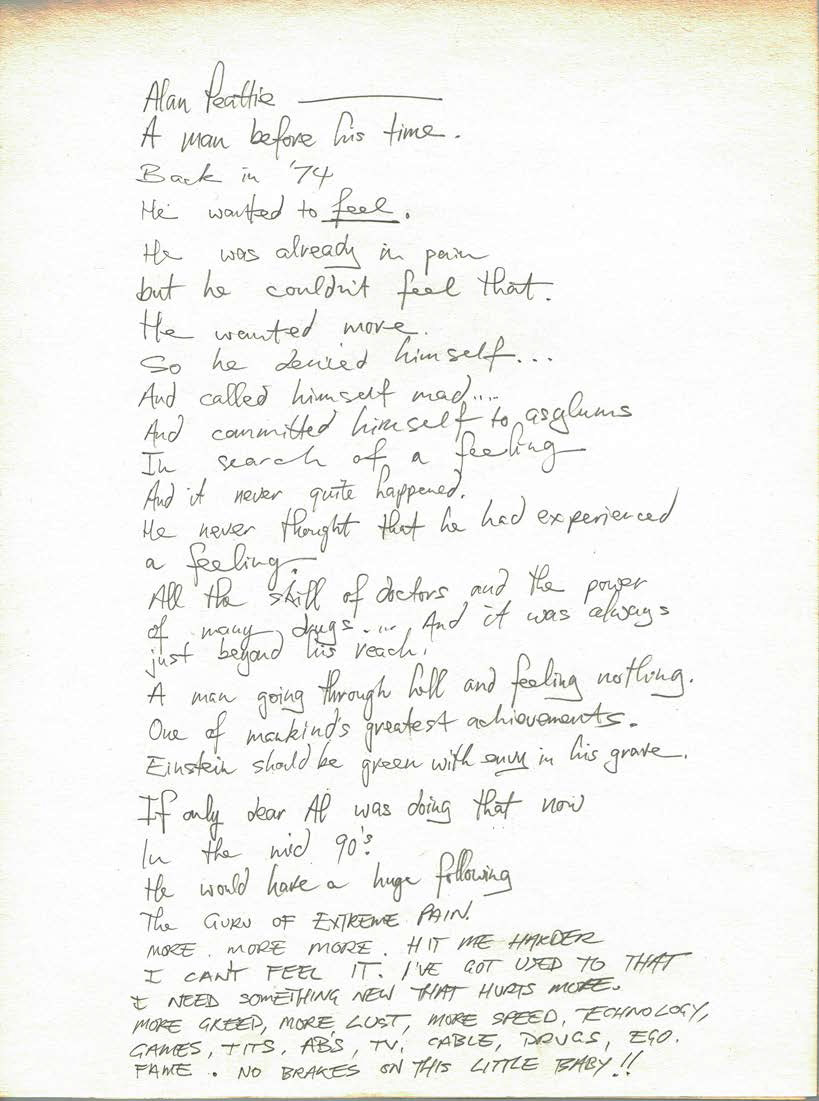 Alan Peattie ———
A man before his time.
Back in '74
He wanted to feel.
He was already in pain
but he couldn't feel that.
He wanted more.
So he denied himself...
And called himself mad....
And committed himself to asylums
In search of a feeling
And it never quite happened.
He never thought that he had experienced
a feeling.
All the skill of doctors and the power
of many drugs.... And it was always
just beyond his reach.
A man going through hell and feeling nothing.
One of mankind's greatest achievements.
Einstein should be green with envy in his grave.
If only dear Al was doing that now
In the mid 90's.
He would have a huge following
The GURU OF EXTREME PAIN.
MORE. MORE MORE. HIT ME HARDER
I CAN'T FEEL IT. I'VE GOT USED TO THAT
I NEED SOMETHING NEW THAT HURTS MORE.
MORE GREED, MORE LUST, MORE SPEED, TECHNOLOGY,
GAMES, TITS, AB'S, TV, CABLE, DRUGS, EGO.
FAME. NO BRAKES ON THIS LITTLE BABY!!